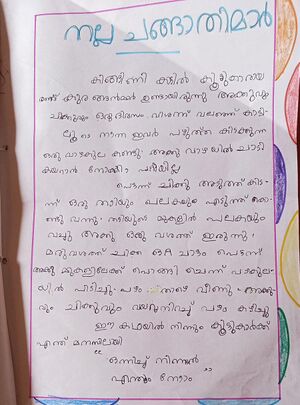 നല്ല ചങ്ങാതിമാർ
കിങ്ങിണി കാട്ടിൽ കൂട്ടുകാരായ
രണ്ട് കുരങ്ങൻമാർ ഉണ്ടായിരുന്നു അക്കുവും
ചിക്കുവും ഒരു ദിവസം വിശന്ന് വലഞ്ഞ് കാട്ടി
ലൂടെ നടന്ന ഇവർ പഴുത്ത് കിടക്കുന്ന
ഒരു വാഴക്കുല കണ്ടു. അക്കു വാഴയിൽ ചാടി
കയറാൻ നോക്കി പറ്റിയില്ല
പെട്ടെന്ന് ചിക്കു അടുത്ത് കിട
ന്ന് ഒരു തടിയും പലകയും എടുത്ത് കൊ
ണ്ടു വന്നു. തടിയുടെ മുകളിൽ പലകയും
വച്ചു അക്കു ഒരു വശത്ത് ഇരുന്നു.
മറുവശത്ത് ചിക്കു ഒറ്റ ചാട്ടം പെട്ടെന്ന്
അക്കു മുകളിലേക്ക് പൊങ്ങി ചെന്ന് പഴക്കുല
യിൽ പിടിച്ചു. പഴം താഴെ വീണു. അക്കു
വും ചിക്കുവും വയറുനിറച്ച് പഴം കഴിച്ചു
ഈ കഥയിൽ നിന്നും കൂട്ടുകാർക്ക്
എന്ത് മനസിലായി
"ഒന്നിച്ച് നിന്നാൽ
എന്തും നേടാം"